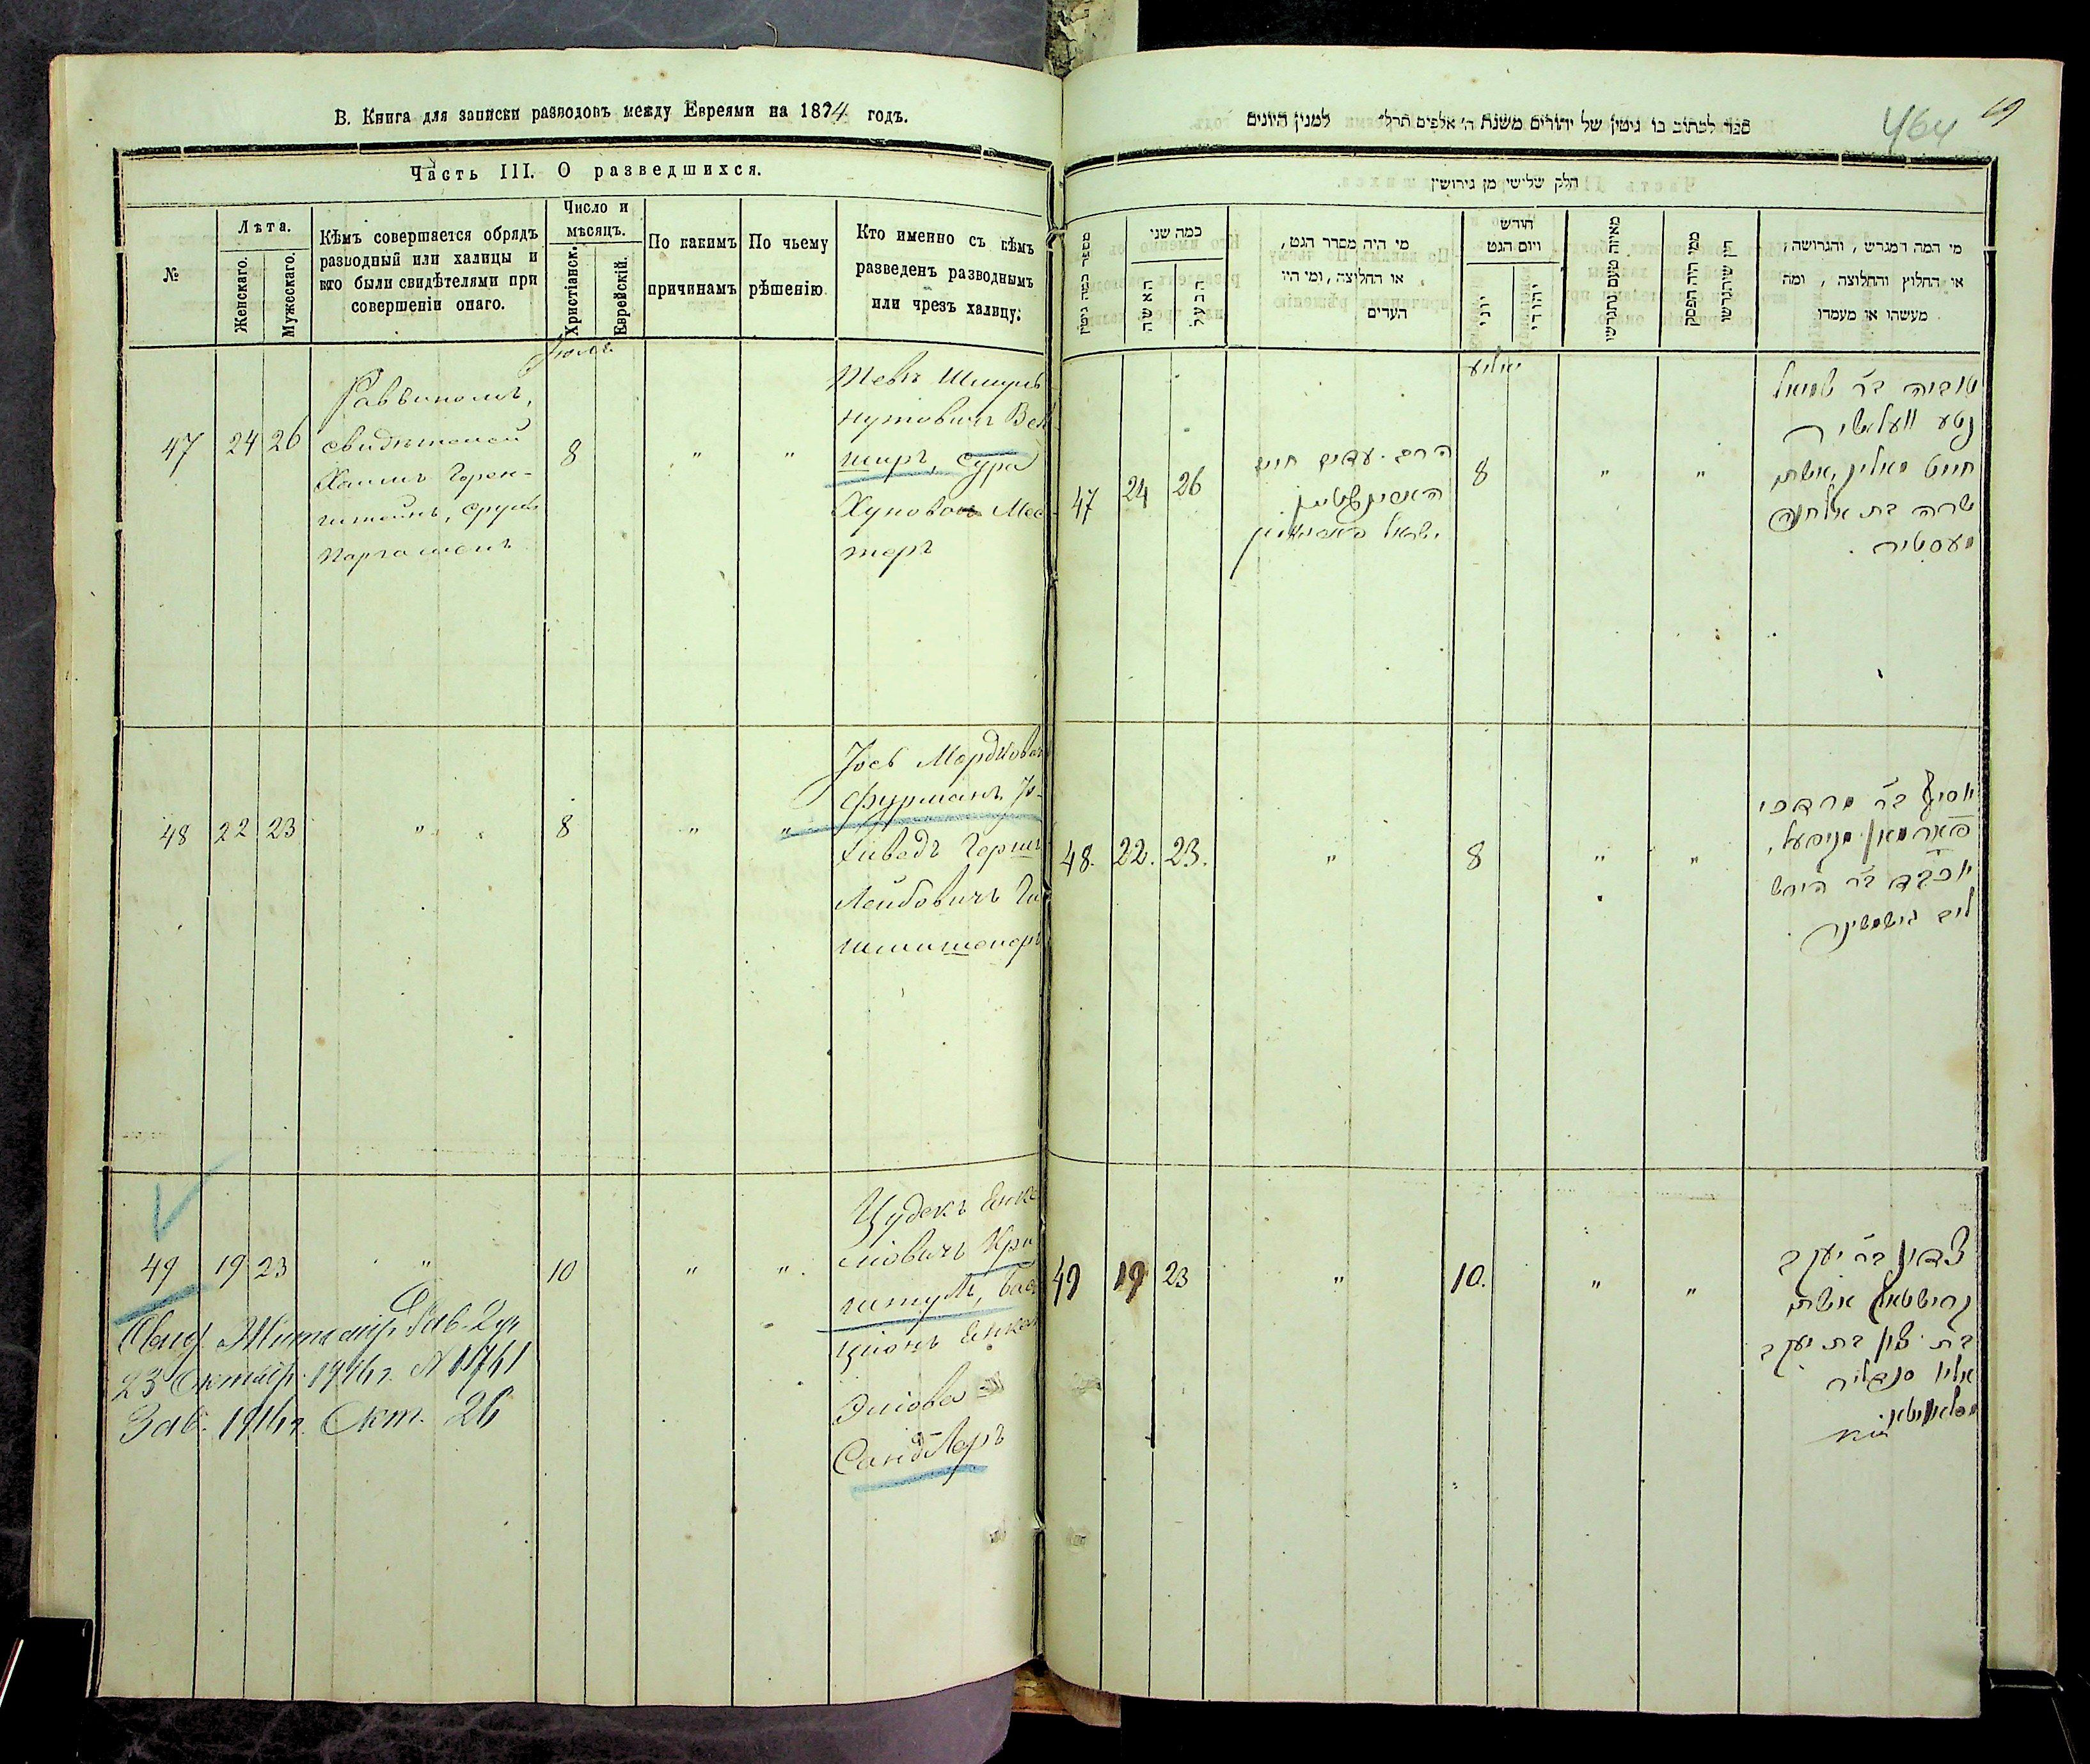 В. Книга для записки разводовъ между Евреями на 1874 годъ.
Часть III. О разведшихся.
№
Лѣта.
Женскаго.
Мужескаго.
Кѣмъ совершается обрядъ
разводный или халицы и
кто были свидѣтелями при
совершеніи онаго.
Число и
мѣсяцъ.
Христіанск.
Еврейскій.
По какимъ
причинамъ
По чьему
рѣшенію
Кто именно съ кѣмъ
разведенъ разводнымъ
или чрезъ халицу:
Іюль
47 24 26
Раввиномъ,
свидѣтелей
Хаимъ Горен-
штейнъ, Сруль
8 " "
Тевье Шмуль
нутовичъ Вел
ширъ, Сура
Хуновна Мес-
теръ
48 22 23 " 8 " "
Іосъ Мордковичъ
Фурманъ, Іо-
хиведъ Герш
Лейбовичъ Ги
49 19 23 " 10 " "
Цудекъ Янке
левичъ Кри
штулъ, Бас
Ціонъ Янкел
Эліовна
Сандлеръ
Житомір. Рав.
23 Октябр. 1916 г. № 11761
1916 г. Окт. 26
464
ספר לכתוב בו גיטין של יהודים משנת ה' אלפים תרל" למנין היונים
חלק שלישי מן גירושין
מספר כמה גיטין
כמה שני
האשה
הבעל
מי היה מסדר הגט,
או החליצה, ומי היו
העדים
חודש
ויום הגט
יוני
יהודי
מאיזה טעם נתגרשו
ממי היה הפסק
דין שיתגרשו
מי המה המגרש, והגרושה,
או החלוץ והחלוצה, ומה
מעשהו או מעמדו
יוליע
47 24 26
הרב. עדים חיים
האסינשטיין
ישראל
8 " "
טוביה ב"ר שמואל
נטע וועלשיר
אשתו
שרה בת אלחנן
מעסטיר.
48. 22. 23. " 8 " "
יוסף ב"ר מרדכי
פורמאן
יוכבד ב"ר הירש
ליב
49 19 23 " 10. " "
צדוק ב"ר יעקב
קרישטאל אשתו
בת ציון בת יעקב
אליו סנדליר